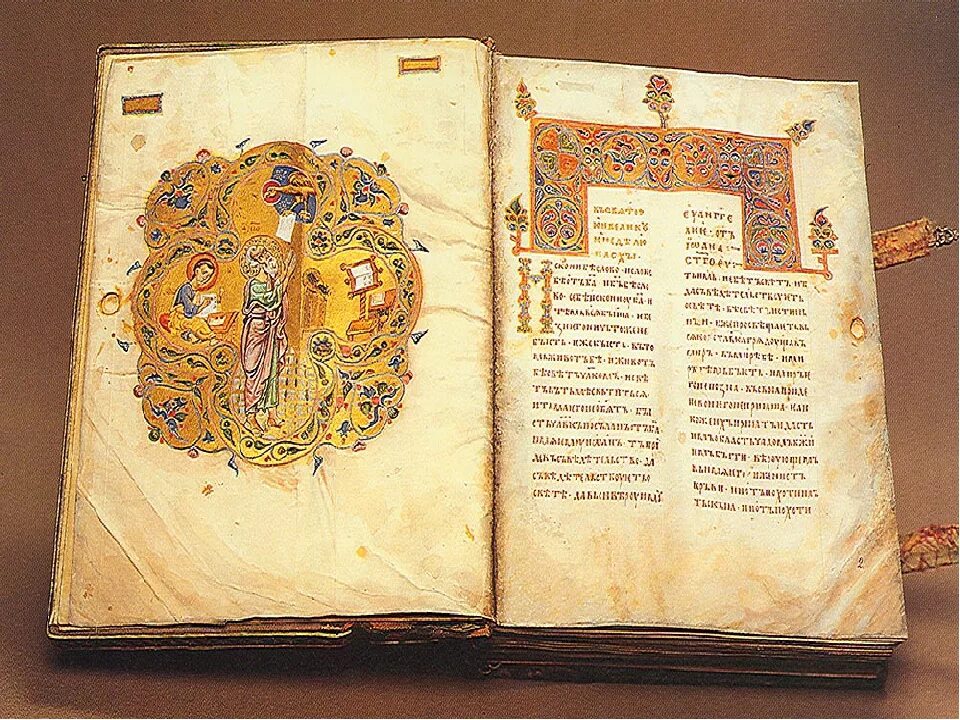 къ свѧтѣи
и велицѣ
и недѣлю
пасхы
искони бѣ слово · и слово
бѣ отъ ба · и бъ бѣ сло
во · се бѣ искони ѹ ба · и
тѣмь вьсѧ быша · и бе
з него ничьтоже не
бысть · ѥже бысть · въ то
мь животъ бѣ · и животъ
бѣ свѣтъ члкомъ · и свѣ
тъ въ тьмѣ свьтитьсѧ
и тьма ѥго не обѧтъ · бы
сть члкъ посъланъ отъ ба ·
имѧ ѥмѹ иоанъ · тъ при
де въ съвѣдѣтельство · да
съвѣдѣтельствѹѥть о
свѣтѣ · да вьси вѣрѹ имѹ
еуанге
лиѥ · отъ
иоана ·
стго еу ·
ть имь · не бѣ тъ свѣтъ · нъ
да съвѣдѣтельствѹѥть о
свѣтѣ · бѣ свѣтъ истинь
ныи · иже просвѣщаѥть вь
сѧкого члка грѧдѹщаго въ
миръ · въ мирѣ бѣ · и ми
ръ тѣмь бысть · и миръ ѥ
го не позна · въ своꙗ приде
и свои ѥго не приѧша · ѥли
ко же ихъ приѧтъ и дасть
имъ область чадомъ бжи
ѥмъ быти · вѣрѹющемъ
въ имѧ ѥго · иже не отъ
кръви · ни отъ похоти пль
тьскы · ни отъ похоти
2